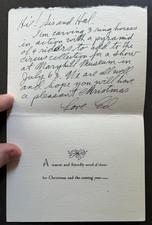 Hi! Sis and Hal.
I'm carving 3 ring horses
in action with a pyramid
of 4 riders to add to the
circus collection for a show
at Maryhill Museum in
July 63. We are all well
and hope you will have
a pleasant Christmas
Love Ed
A
warm and friendly word of cheer
for Christmas and the coming year